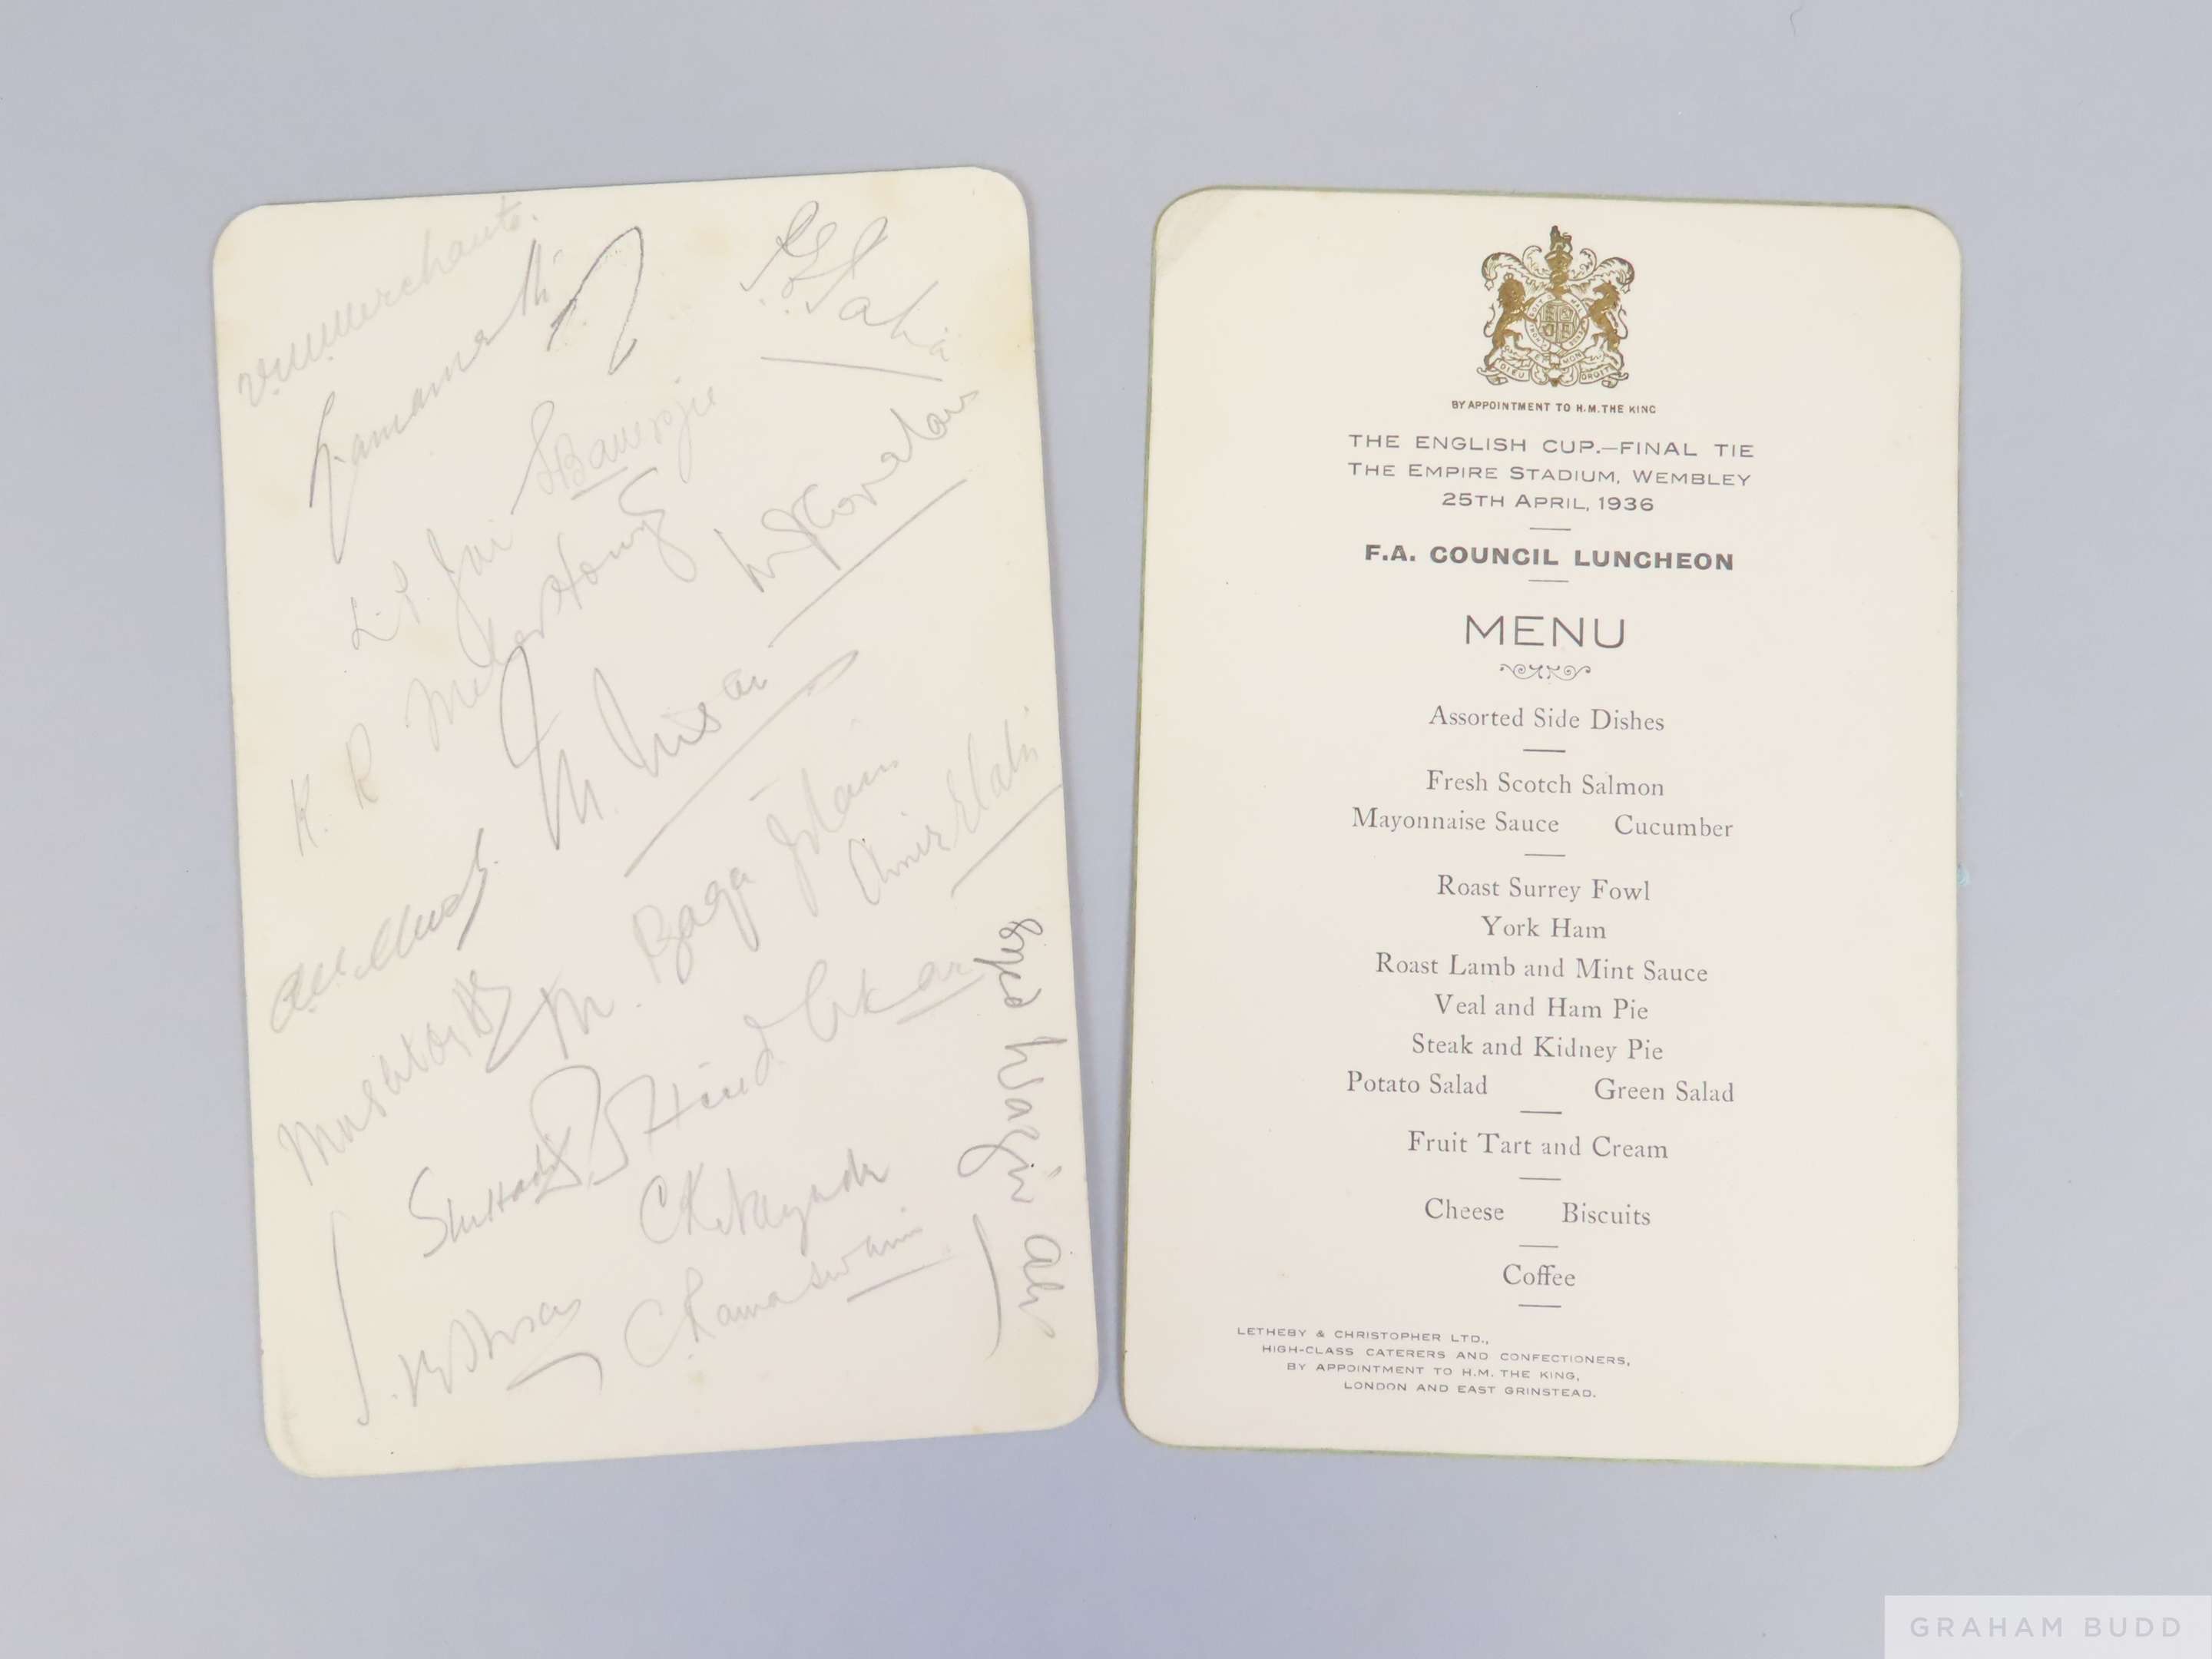 V.M. Merchant.
L.P. Jai
S Banerjee
K. R Meherhomji
M. Nisar
M. Baqa Jilani
Amir Elahi
Mushtaq Ali
D. D. Hindlekar
C.K. Nayudu
C Ramaswami
Syed Wazir Ali
DIEU ET MON DROIT
BY APPOINTMENT TO H.M. THE KING
THE ENGLISH CUP.—FINAL TIE
THE EMPIRE STADIUM, WEMBLEY
25TH APRIL, 1936
F.A. COUNCIL LUNCHEON
MENU
Assorted Side Dishes
Fresh Scotch Salmon
Mayonnaise Sauce Cucumber
Roast Surrey Fowl
York Ham
Roast Lamb and Mint Sauce
Veal and Ham Pie
Steak and Kidney Pie
Potato Salad Green Salad
Fruit Tart and Cream
Cheese Biscuits
Coffee
LETHEBY & CHRISTOPHER LTD.,
HIGH-CLASS CATERERS AND CONFECTIONERS,
BY APPOINTMENT TO H.M. THE KING,
LONDON AND EAST GRINSTEAD.
GRAHAM BUDD